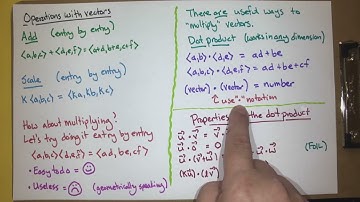 Operations with vectors
Add (entry by entry)
<a,b,c> + <d,e,f> = <a+d, b+e, c+f>
Scale (entry by entry)
K<a,b,c> = <Ka, Kb, Kc>
How about multiplying?
Let's try doing it entry by entry
<a,b,c><d,e,f> = <ad, be, cf>
• Easy to do = ☺
• Useless = ☹ (geometrically speaking)
There are useful ways to
"multiply" vectors.
Dot product (works in any dimension)
<a,b> · <d,e> = ad + be
<a,b,c> · <d,e,f> = ad + be + cf
(vector) · (vector) = number
use "·" notation
Properties the dot product
u · v = v
u · 0 = 0
u · (v + w (FOIL)
(Ku) · (lv)